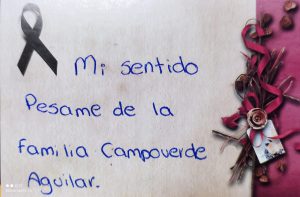 Mi sentido
Pesame de la
familia Campoverde
Aguilar.